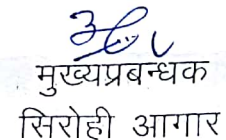 मुख्यप्रबन्धक
सिरोही आगार